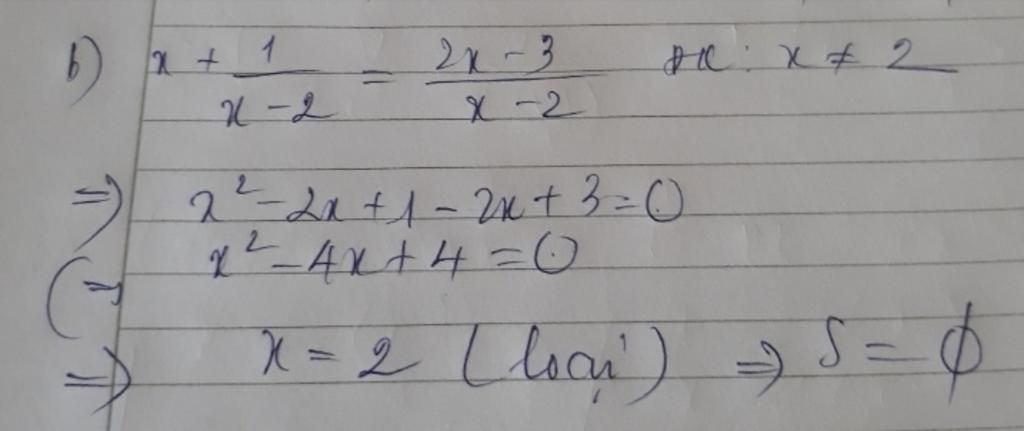 b) x + 1/(x - 2) = (2x - 3)/(x - 2) đk: x ≠ 2
=> x² - 2x + 1 - 2x + 3 = 0
(=) x² - 4x + 4 = 0
=> x = 2 (loại) => S = ϕ